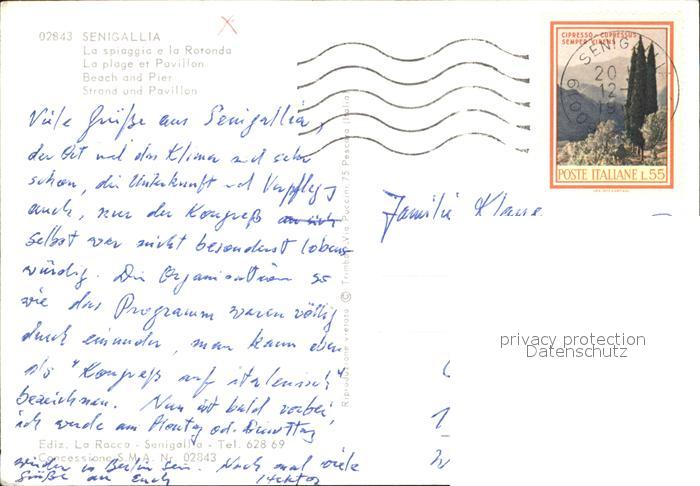 02843 SENIGALLIA
La spiaggia e la Rotonda
La plage et Pavillon
Beach and Pier
Strand und Pavillon
Viele Grüße aus Senigallia,
der Ort und das Klima sind sehr
schön, die Unterkunft und Verpfleg
auch, nur der Kongreß an sich
selbst war nicht besonderst lobens
würdig. Die Organisation so
wie das Programm waren völlig
durch einander, man kann eben
als "Kongreß auf italienisch"
bezeichnen. Nun ist bald vorbei,
ich werde am Montag od. Dienstag
wieder in Berlin sein. Noch mal viele
Grüße an Euch
Ediz. La Rocca - Senigallia - Tel. 628 69
Concessione S.M.A. Nr. 02843
Riproduzione vietata © Trimboli Via Puccini, 75 Pescara Italia
CIPRESSO - CUPRESSUS
SEMPERVIRENS
SENIG
60019
20
12-
19
POSTE ITALIANE L.55
Familie Klaus
privacy protection
Datenschutz